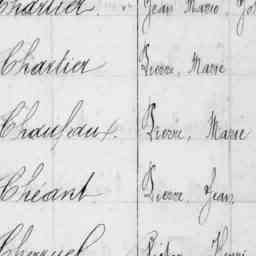 Chartier. Jean Marie, Jo
Chartier Pierre, Marie
Chaufaux. Pierre, Marie
Chéant Pierre, Jean
Cherruel Henri